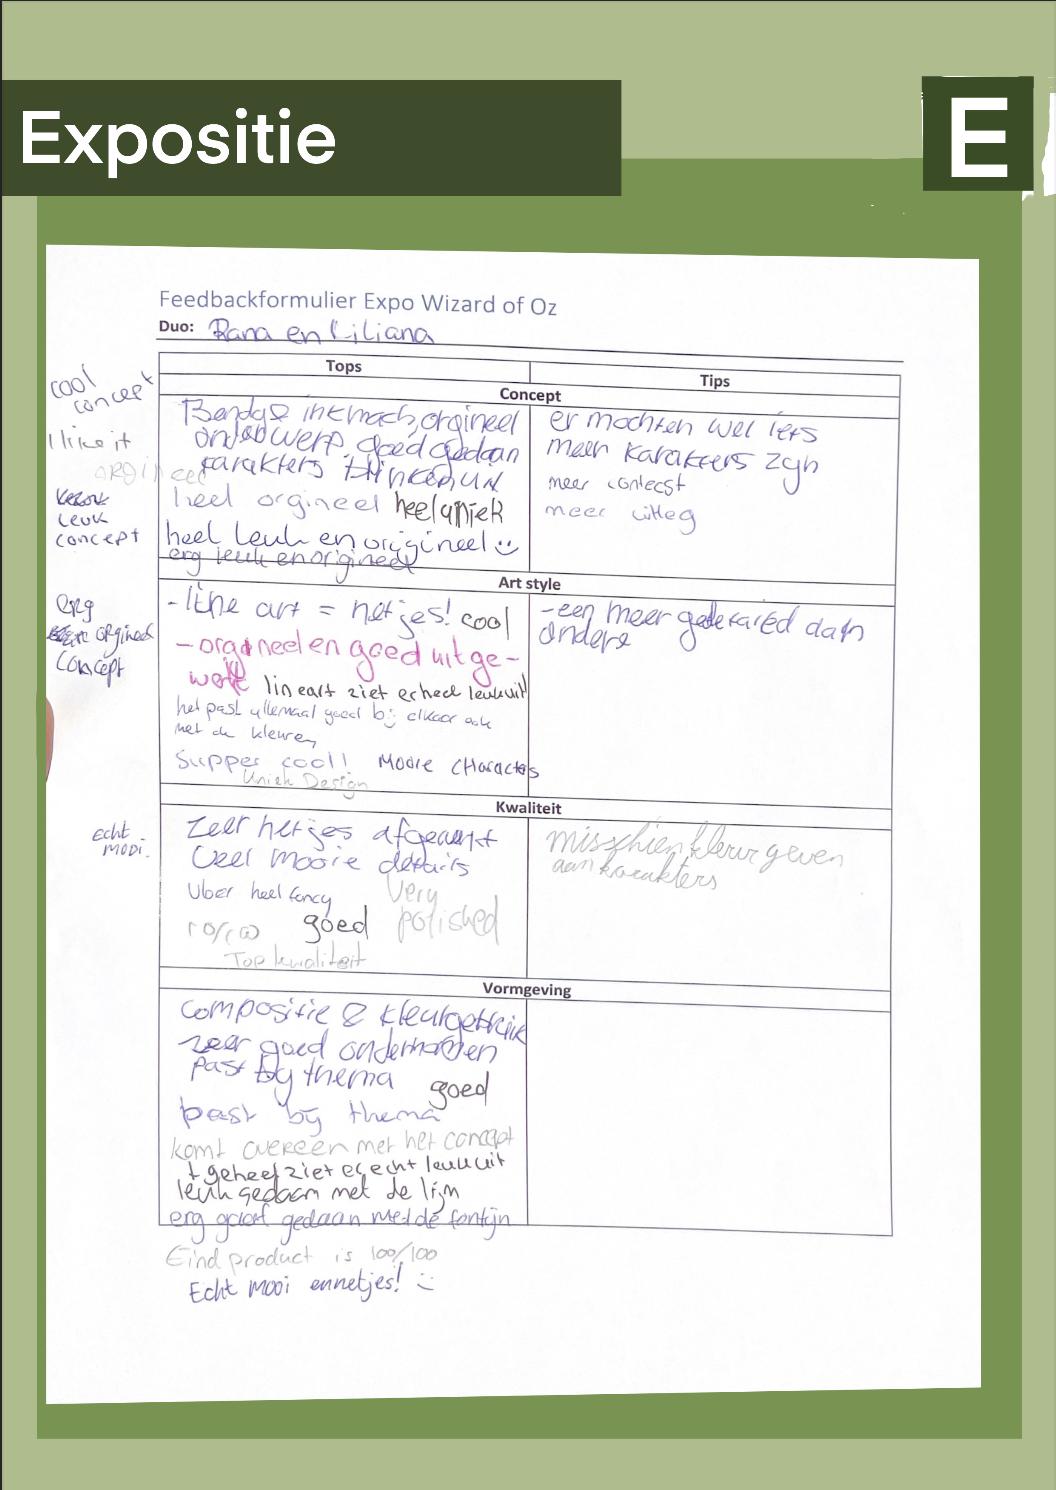 Expositie
E
Feedbackformulier Expo Wizard of Oz
Duo: Rana en Liliana
Tops
Tips
Concept
cool
concept
I like it
orgineel
leuk
concept
orgineel
onderwerp. goed gedaan
karakters
heel orgineel heel uniek
heel leuk en origineel :)
erg leuk en origineel
er mochten wel iets
meer karakters zyn
meer contecst
meer uitleg
Art style
erg
orgineel
concept
- line art = netjes! cool
- orgineel en goed uitge-
werkt lineart ziet er heel leuk uit
het past allemaal goed bij elkaar ook
met de kleuren
Supper cool! Mooie characters
Uniek Design
- een meer dan
andere
Kwaliteit
Echt
mooi.
Zeer netjes afgewerkt
Veel mooie details
Uber heel fancy
Very
polished
goed
Top kwaliteit
misschien kleur geven
aan karakters
Vormgeving
compositie & kleurgebruik
zeer goed onderhouden
past by thema goed
past bij thema
komt overeen met het concept
t geheel ziet er echt leuk uit
leuk gedaan met de lijn
erg gaaf gedaan met de fontijn
Eind product is 100/100
Echt mooi en netjes! :)